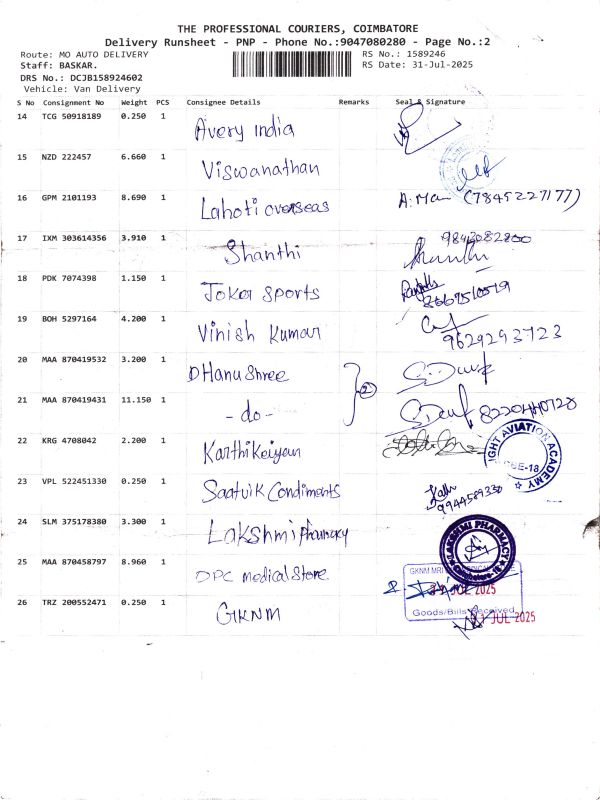 THE PROFESSIONAL COURIERS, COIMBATORE
Delivery Runsheet - PNP - Phone No.:9047080280 - Page No.:2
Route: MO AUTO DELIVERY RS No.: 1589246
Staff: BASKAR. RS Date: 31-Jul-2025
DRS No.: DCJB158924602
Vehicle: Van Delivery
S No Consignment No Weight PCS Consignee Details Remarks Seal & Signature
14 TCG 50918189 0.250 1 Avery India
15 NZD 222457 6.660 1 Viswanathan
16 GPM 2101193 8.690 1 Lahoti overseas A. Man (7845227177)
17 IXM 303614356 3.910 1 Shanthi 9843082800
Shanthi
18 PDK 7074398 1.150 1 Joker Sports
19 BOH 5297164 4.200 1 Vinish Kumar 9629293723
20 MAA 870419532 3.200 1 DHanu Shree
2
21 MAA 870419431 11.150 1 - do - 8220440728
22 KRG 4708042 2.200 1 Karthikeiyan
GHT AVIATION ACADEMY
23 VPL 522451330 0.250 1 Saatvik Condiments
9944589330
24 SLM 375178380 3.300 1 Lakshmi Pharmacy
LAKSHMI PHARMACY
25 MAA 870458797 8.960 1 DPC medical Store
GKNM MRI
JUL 2025
26 TRZ 200552471 0.250 1 GKNM
Goods/Bills Received
31 JUL 2025